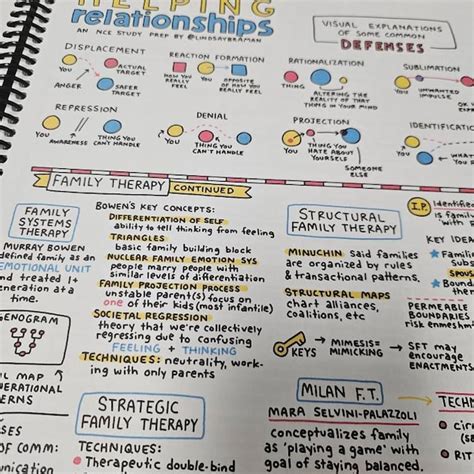 HELPING
relationships
AN NCE STUDY PREP BY @LINDSAYBRAMAN
VISUAL EXPLANATIONS
OF SOME COMMON
DEFENSES
DISPLACEMENT
YOU
ACTUAL
TARGET
ANGER
SAFER
TARGET
REACTION FORMATION
HOW YOU
REALLY
FEEL
OPPOSITE
OF HOW YOU
REALLY FEEL
RATIONALIZATION
THING
ALTERING THE
REALITY OF THAT
THING IN YOUR MIND
SUBLIMATION
YOU
UNWANTED
IMPULSE
REPRESSION
YOU
AWARENESS
THING YOU
CAN'T HANDLE
DENIAL
YOU
THING YOU
CAN'T HANDLE
PROJECTION
YOU
THING YOU
HATE ABOUT
YOURSELF
SOMEONE
ELSE
IDENTIFICAT
YOU
FAMILY THERAPY CONTINUED
FAMILY
SYSTEMS
THERAPY
MURRAY BOWEN
defined family as an
EMOTIONAL UNIT
and treated 1+
generation at a
time.
GENOGRAM
BOWEN'S KEY CONCEPTS:
DIFFERENTIATION OF SELF
ability to tell thinking from feeling
TRIANGLES
basic family building block
NUCLEAR FAMILY EMOTION SYS
people marry people with
similar levels of differentiation
FAMILY PROJECTION PROCESS
unstable parent(s) focus on
one of their kids (most infantile)
SOCIETAL REGRESSION
theory that we're collectively
regressing due to confusing
FEELING + THINKING
TECHNIQUES: neutrality, work-
ing with only parents
STRUCTURAL
FAMILY THERAPY
MINUCHIN said families
are organized by rules
& transactional patterns.
STRUCTURAL MAPS
chart alliances,
coalitions, etc
KEYS
MIMESIS=
MIMICKING
SFT may
encourage
ENACTMENTS
I.P. Identified
is family
with
KEY IDEA
Families
Subs
Bounda
PERMEABLE
BOUNDARIES
risk enmeshm
STRATEGIC
FAMILY THERAPY
TECHNIQUES:
Therapeutic double-bind
MILAN F.T.
MARA SELVINI-PALAZZOLI
conceptualizes family
as 'playing a game' with
goal of staying balanced.
TECHN
circ
OF COMM: